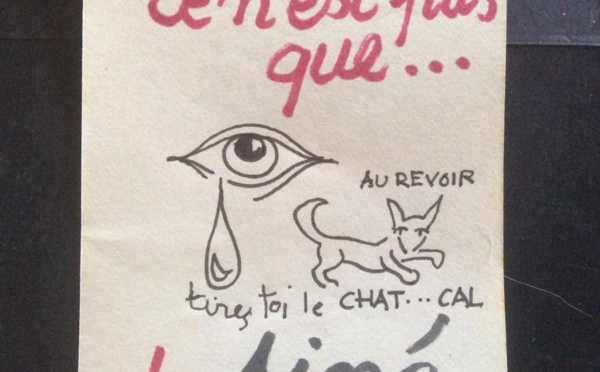 ce n'est pas
que...
AU REVOIR
tires toi le CHAT...CAL
Siné